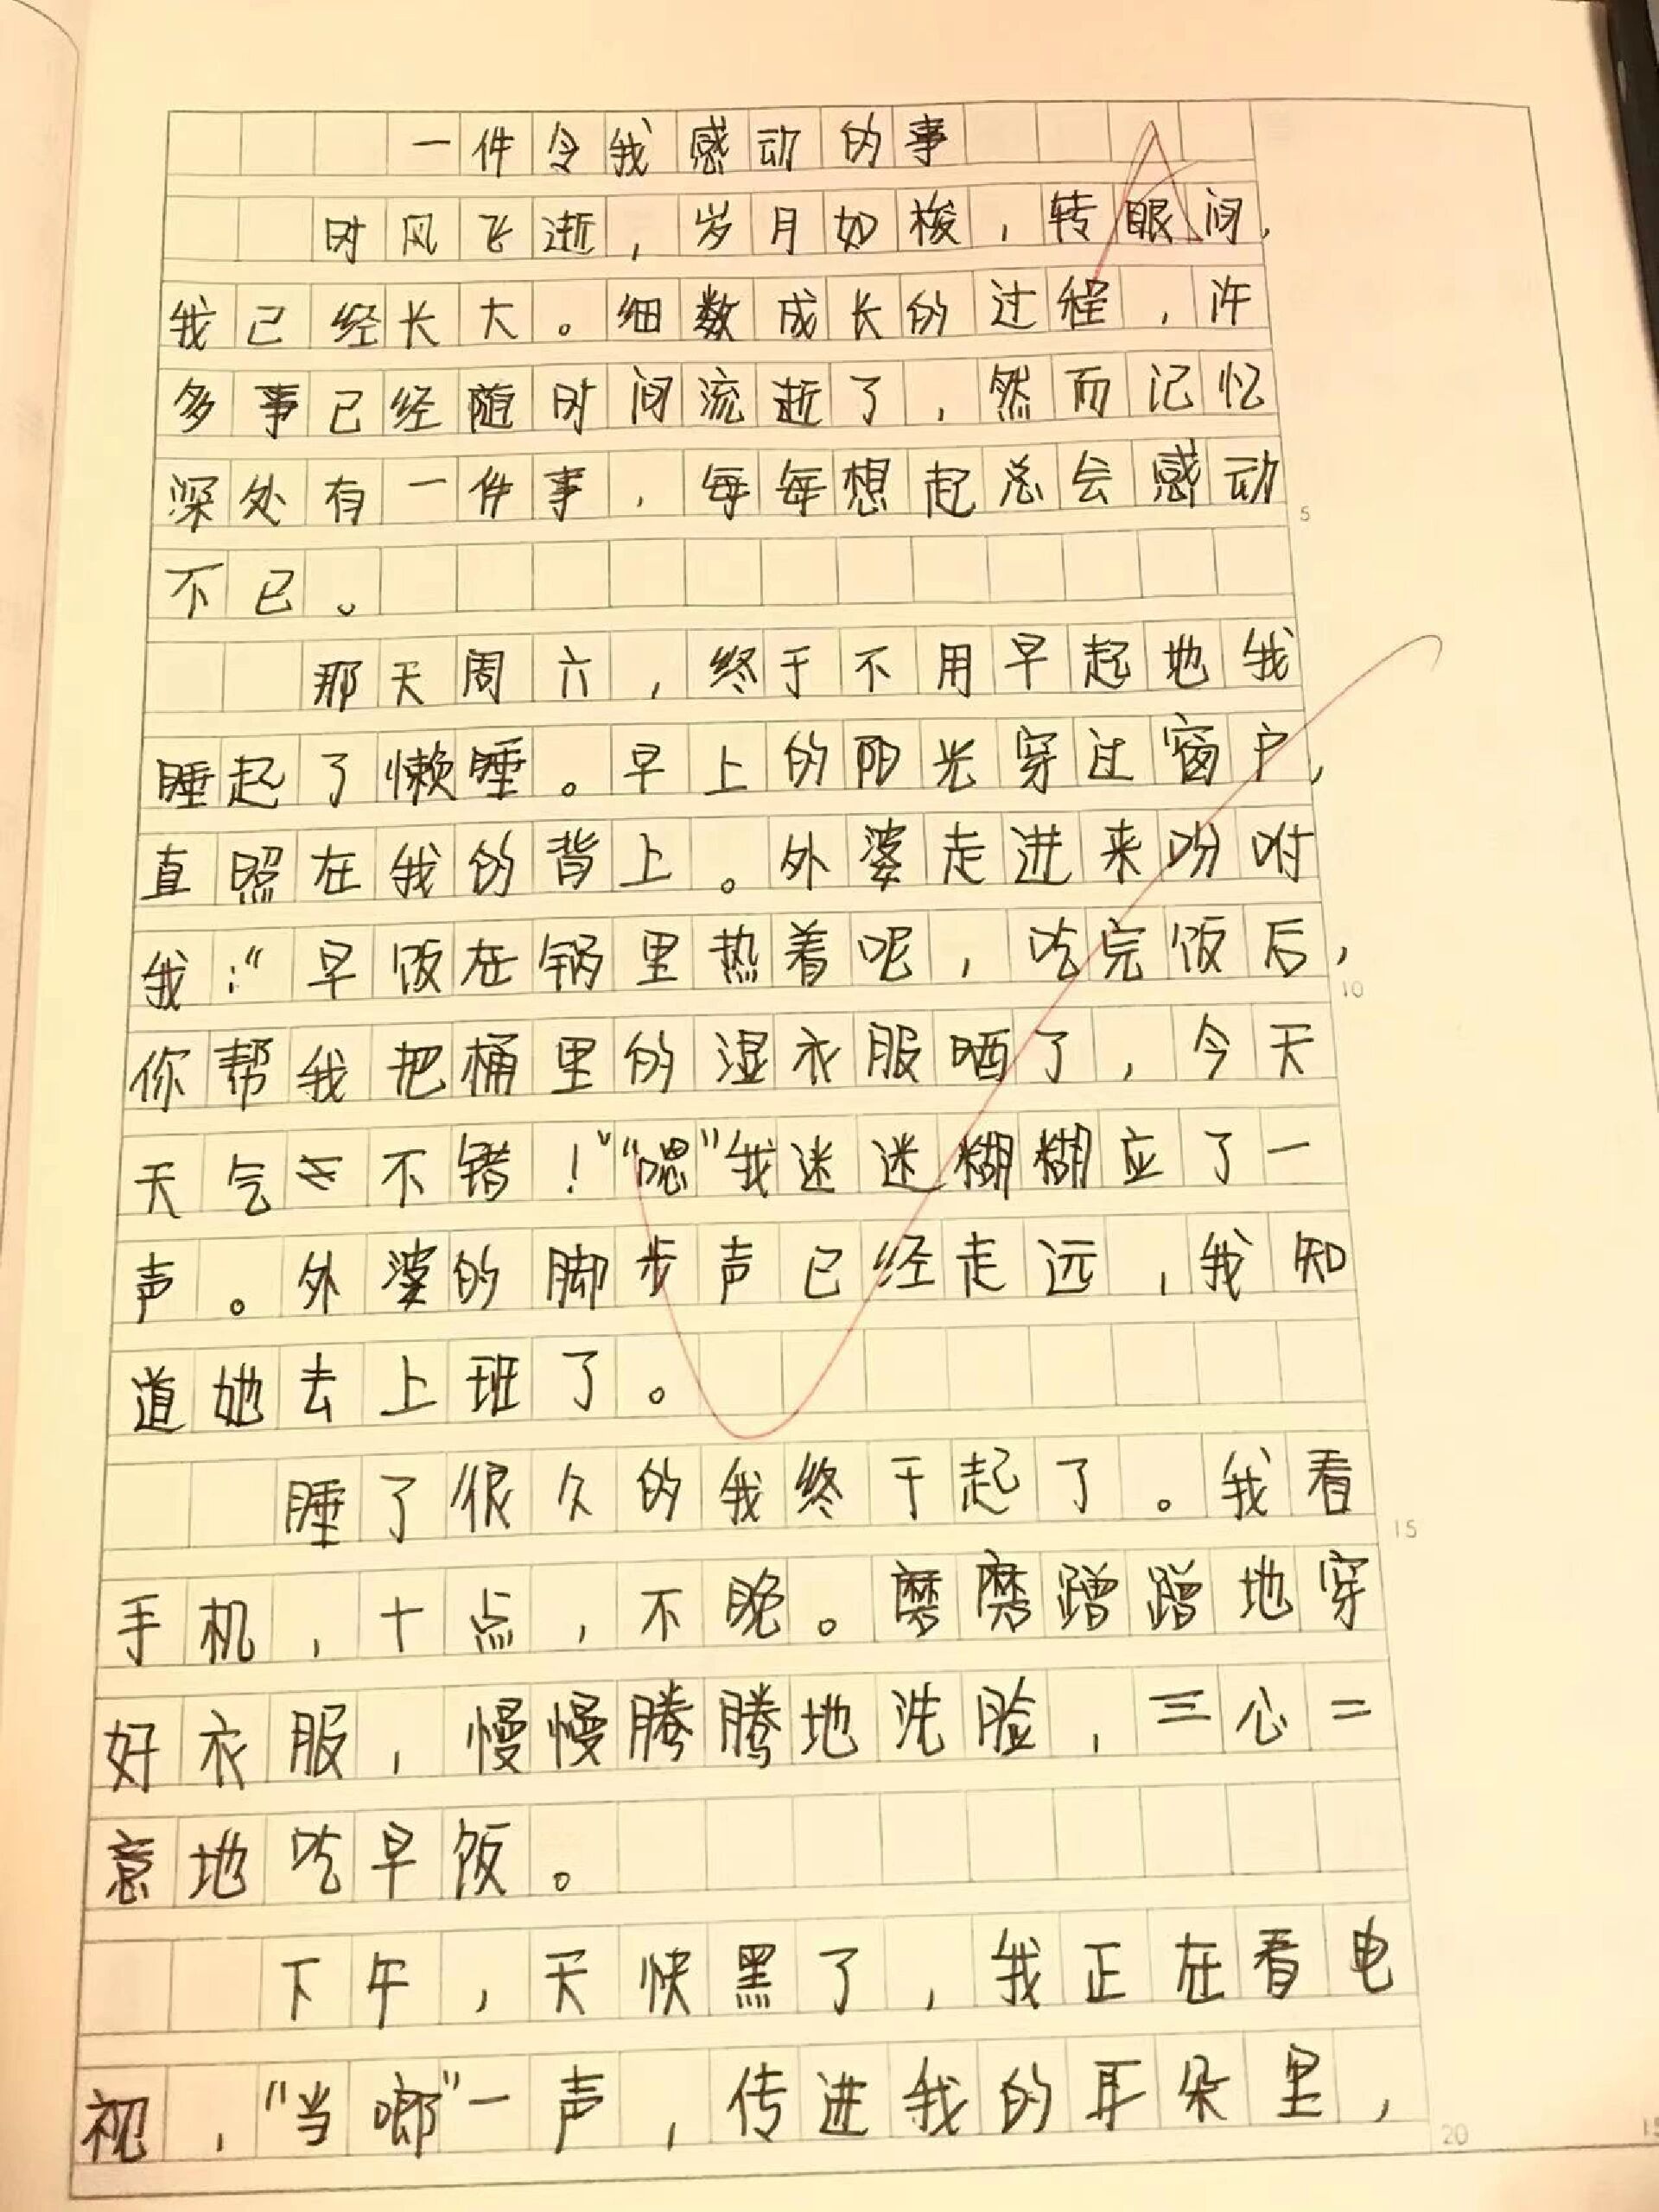 一件令我感动的事
时风飞逝，岁月如梭，转眼间，
我已经长大。细数成长的过程，许
多事已经随时间流逝了，然而记忆
深处有一件事，每每想起总会感动
不已。
那天周六，终于不用早起地我
睡起了懒睡。早上的阳光穿过窗户，
直照在我的背上。外婆走进来吩咐
我：“早饭在锅里热着呢，吃完饭后，
你帮我把桶里的湿衣服晒了，今天
天气不错！”“嗯”我迷迷糊糊应了一
声。外婆的脚步声已经走远，我知
道她去上班了。
睡了很久的我终于起了。我看
手机，十点，不晚。磨磨蹭蹭地穿
好衣服，慢慢腾腾地洗脸，三心二
意地吃早饭。
下午，天快黑了，我正在看电
视，“当啷”一声，传进我的耳朵里，
5
10
15
20